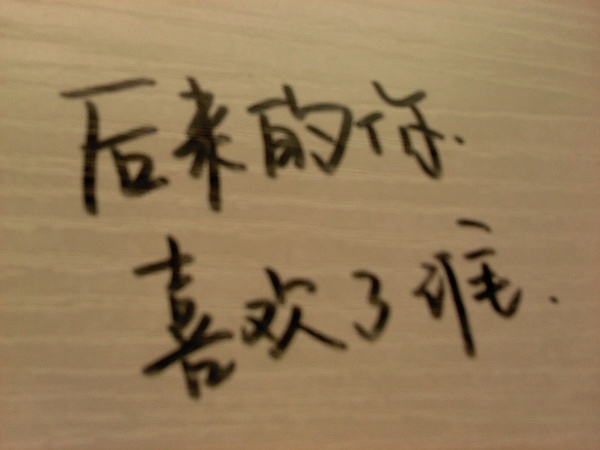 后来的你.
喜欢了谁.